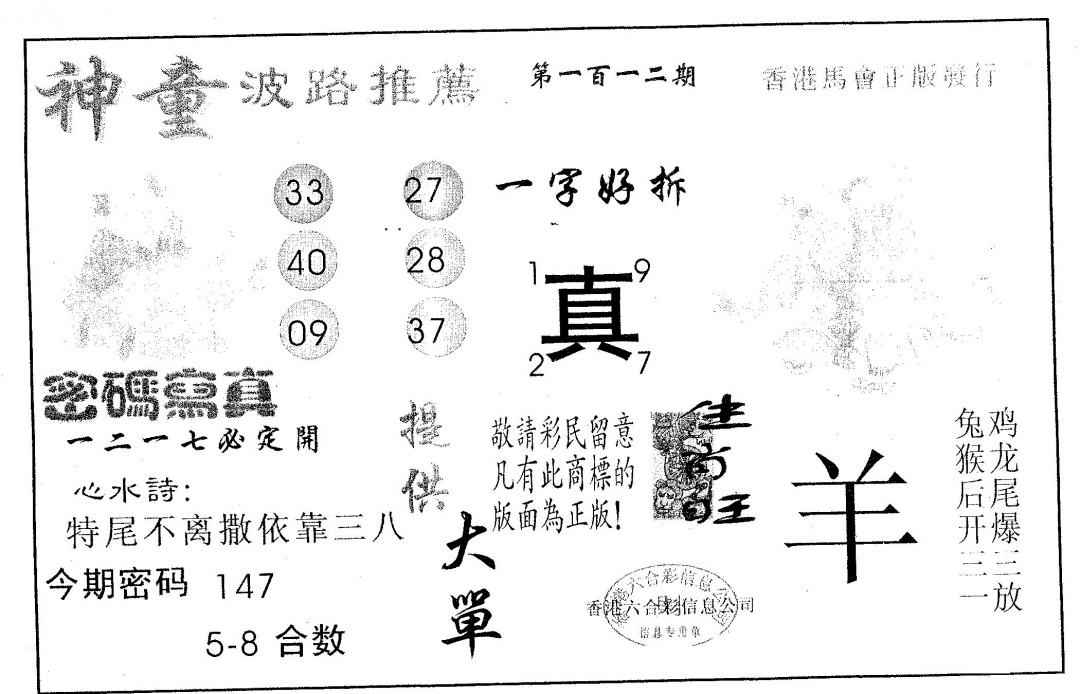 神童波路推薦
第一百一二期
香港馬會正版發行
33 27
40 28
09 37
一字好拆
1 9
真
2 7
密碼寫真
一二一七必定開
心水詩:
特尾不离撒依靠三八
今期密码 147
5-8 合数
提供
大單
敬請彩民留意
凡有此商標的
版面為正版!
羊
鸡龙尾爆三放
兔猴后开三一
香港六合彩信息公司
信息专用章